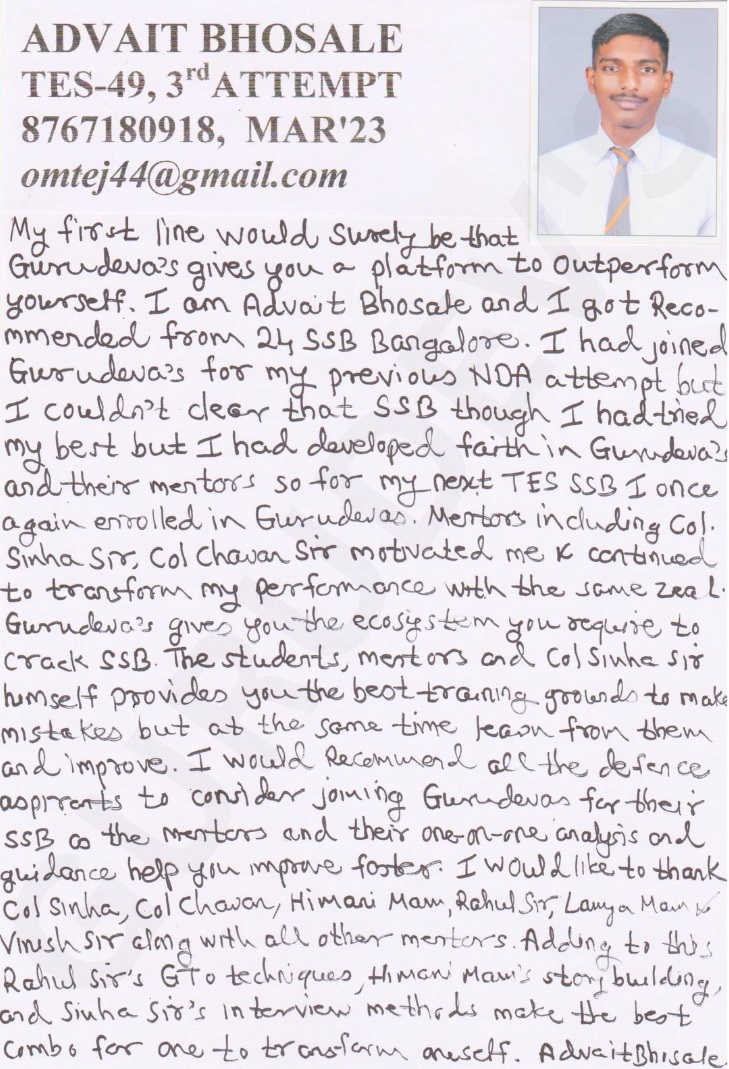 ADVAIT BHOSALE
TES-49, 3rd ATTEMPT
8767180918, MAR'23
omtej44@gmail.com
My first line would surely be that
Gurudeva's gives you a platform to Outperform
yourself. I am Advait Bhosale and I got Reco-
mmended from 24 SSB Bangalore. I had joined
Gurudeva's for my previous NDA attempt but
I couldn't clear that SSB though I had tried
my best but I had developed faith in Gurudeva's
and their mentors so for my next TES SSB I once
again enrolled in Gurudevas. Mentors including Col.
Sinha Sir, Col Chavan Sir motivated me & continued
to transform my performance with the same zeal.
Gurudeva's gives you the ecosystem you require to
crack SSB. The students, mentors and Col Sinha Sir
himself provides you the best training grounds to make
mistakes but at the same time learn from them
and improve. I would Recommend all the defence
aspirants to consider joining Gurudevas for their
SSB as the mentors and their one-on-one analysis and
guidance help you improve faster. I would like to thank
Col Sinha, Col Chavan, Himani Mam, Rahul Sir, Lamya Mam &
Vinesh Sir along with all other mentors. Adding to this
Rahul Sir's GTO techniques, Himani Mam's story building,
and Sinha Sir's interview methods make the best
combo for one to transform oneself. Advait Bhosale
GURUDEVA'S